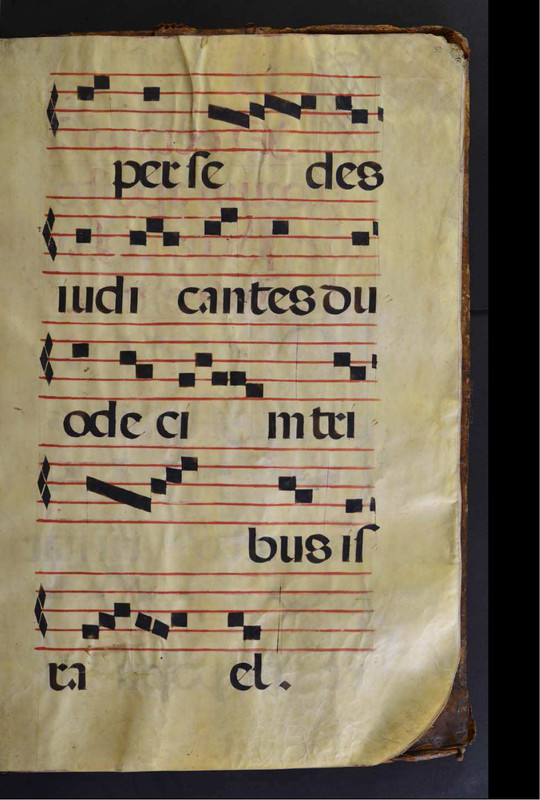 per se des
iudi cantes du
ode ci m tri
bus is
ra el.